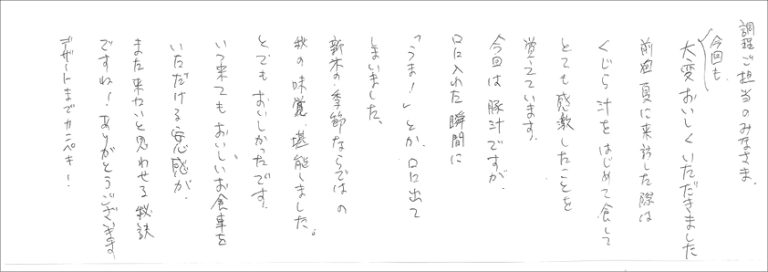 調理ご担当のみなさま、
今回も
大変おいしくいただきました
前回夏に来訪した際は
くじら汁をはじめて食して
とても感激したことを
覚えています。
今回は豚汁ですが、
口に入れた瞬間に
「うま!」とか口に出て
しまいました。
新米の季節ならではの
秋の味覚、堪能しました。
とてもおいしかったです。
いつ来てもおいしいお食事を
いただける安心感が、
また来たいと思わせる秘訣
ですね!ありがとうございます
デザートまでカンペキ!